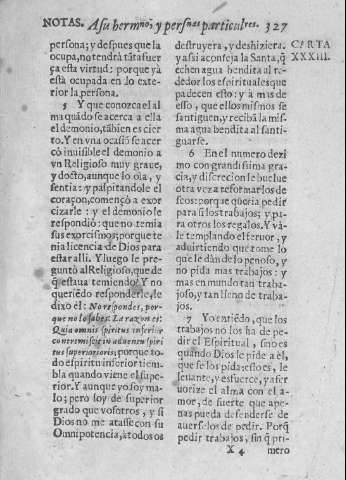 NOTAS. A su hermno, y persnas particulres. 327
persona; y despues que la
ocupa, no tendrà tãta fuer
ça esta virtud: porque yà
està ocupada en lo exte-
rior la persona.
5 Y que conozca el al
ma quãdo se acerca a ella
el demonio, tãbien es cier
to. Y en vna ocasiõ se acer
cò inuisible el demonio a
vn Religioso muy graue,
y docto, aunque lo oìa, y
sentia: y palpitandole el
coraçon, començò a exor
cizarle: y el demonio le
respondiò: que no temia
sus exorcismos; porque te
nia licencia de Dios para
estar alli. Y luego le pre-
guntò al Religioso, que de
què estaua temiendo? Y no
queriẽdo responderle, le
dixo èl: No respondes, por-
que no lo sabes. La razon es:
Quia omnis spiritus inferior
contremiscit in aduentu spiri
tus superioris; porque to-
do espiritu inferior tiem-
bla quando viene el supe-
rior. Y aunque yo soy ma-
lo; pero soy de superior
grado que vosotros, y si
Dios no me atasse con su
Omnipotencia, à todos os
destruyera, y deshiziera.
y assi aconseja la Santa, q̃
echen agua bendita al re-
dedor los espirituales que
padecen esto: y a mas de
esso, que ellos mismos se
santiguen, y recibã la mis-
ma agua bendita al santi-
guarse.
6 En el numero dezi
mo con grandissima gra-
cia, y discrecion le buelue
otra vez a reformar los de
seos: porque queria pedir
para sì los trabajos; y pa-
ra otros los regalos. Y và-
le templando el feruor, y
aduirtiendo que tome lo
que le dàn de lo penoso, y
no pida mas trabajos: y
mas en mundo tan traba-
joso, y tan lleno de traba-
jos.
7 Yo entiẽdo, que los
trabajos no los ha de pe-
dir el Espiritual, sino es
quando Dios le pide a èl,
que se los pida: esto es, le
leuante, y esfuerce, y a fer
uorize el alma con el a-
mor, de suerte que ape-
nas pueda defenderse de
auerselos de pedir. Porq̃
pedir trabajos, sin q̃ pri-
X 4 mero
CARTA
XXXIII.